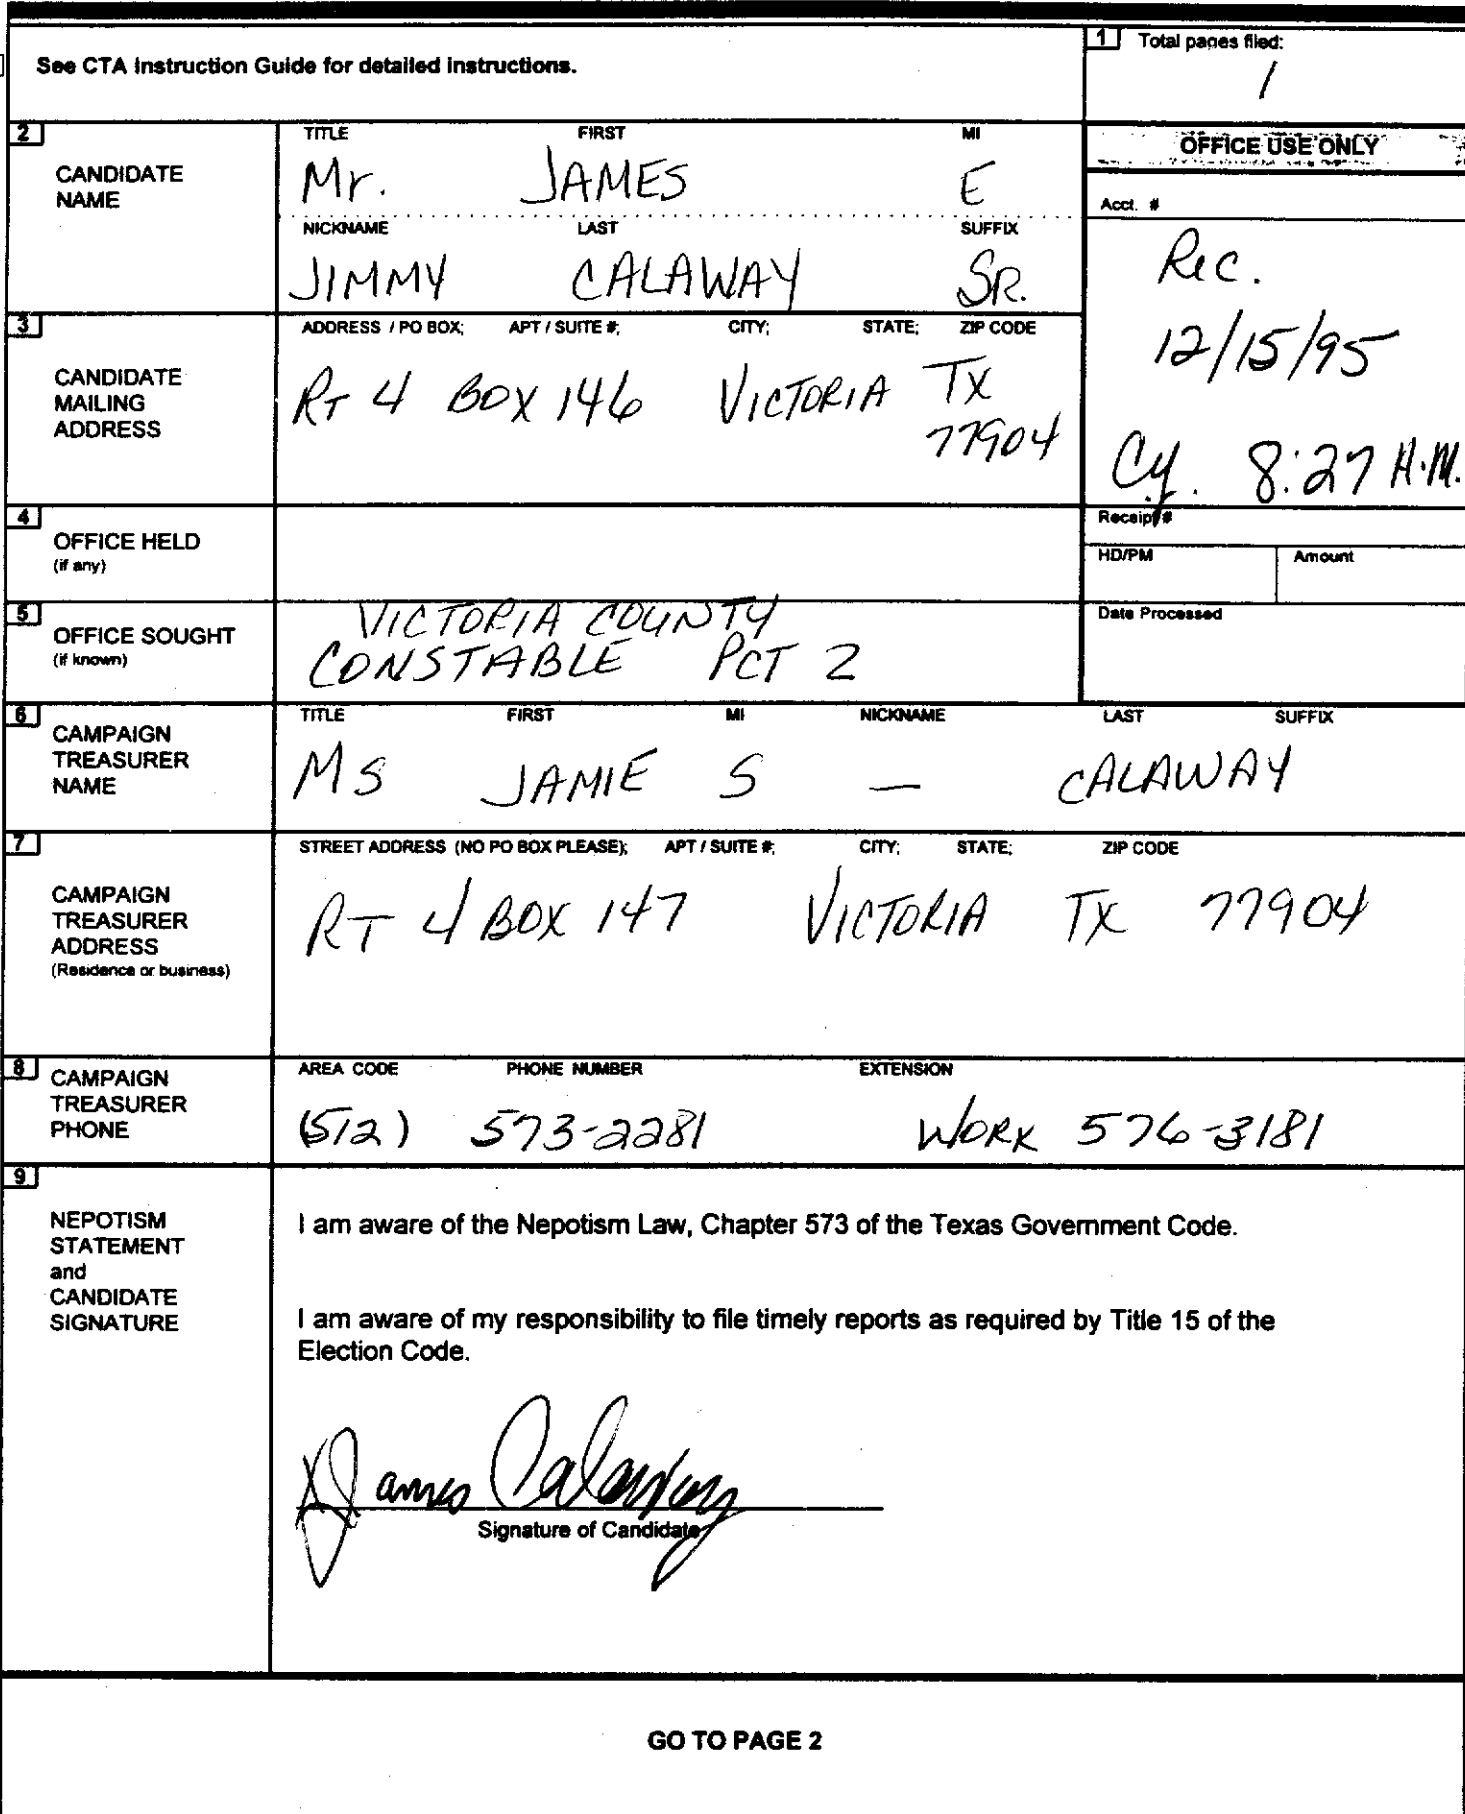 See CTA Instruction Guide for detailed instructions.
1 Total pages filed:
1
2 CANDIDATE NAME
TITLE FIRST MI
Mr. JAMES E
NICKNAME LAST SUFFIX
JIMMY CALAWAY SR.
OFFICE USE ONLY
Acct. #
Rec.
12/15/95
Cy. 8:27 A.M.
Receipt #
HD/PM Amount
Date Processed
3 CANDIDATE MAILING ADDRESS
ADDRESS / PO BOX; APT / SUITE #; CITY; STATE; ZIP CODE
RT 4 BOX 146 VICTORIA TX
77904
4 OFFICE HELD
(if any)
5 OFFICE SOUGHT
(if known)
VICTORIA COUNTY
CONSTABLE PCT 2
6 CAMPAIGN TREASURER NAME
TITLE FIRST MI NICKNAME LAST SUFFIX
MS JAMIE S — CALAWAY
7 CAMPAIGN TREASURER ADDRESS
(Residence or business)
STREET ADDRESS (NO PO BOX PLEASE); APT / SUITE #; CITY; STATE; ZIP CODE
RT 4 BOX 147 VICTORIA TX 77904
8 CAMPAIGN TREASURER PHONE
AREA CODE PHONE NUMBER EXTENSION
(512) 573-2281 WORK 576-3181
9 NEPOTISM STATEMENT and CANDIDATE SIGNATURE
I am aware of the Nepotism Law, Chapter 573 of the Texas Government Code.
I am aware of my responsibility to file timely reports as required by Title 15 of the
Election Code.
James Calaway
Signature of Candidate
GO TO PAGE 2